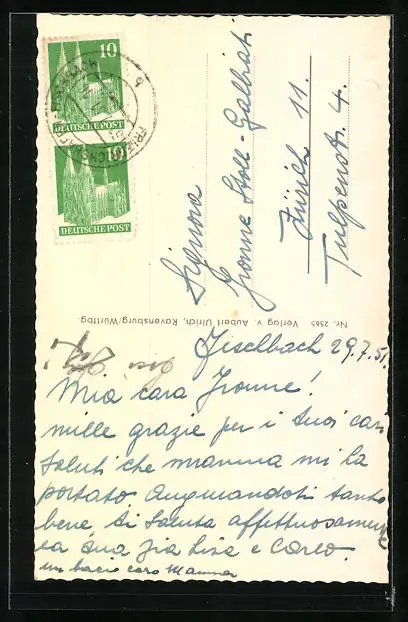 10
DEUTSCHE POST
10
DEUTSCHE POST
Signora
Yvonne Stoll-Galbiati
Zürich 11.
Tulpenstr. 4.
Nr. 2565 Verlag v. Aubert Ulrich, Ravensburg/Württbg.
Fischbach 29.7.51
Mia cara Ivonne!
mille grazie per i tuoi cari
saluti che mamma mi ha
portato Augurandoti tanto
bene ti saluta affettuosamente
la tua zia Lisa e Carlo.
un bacio caro Mamma